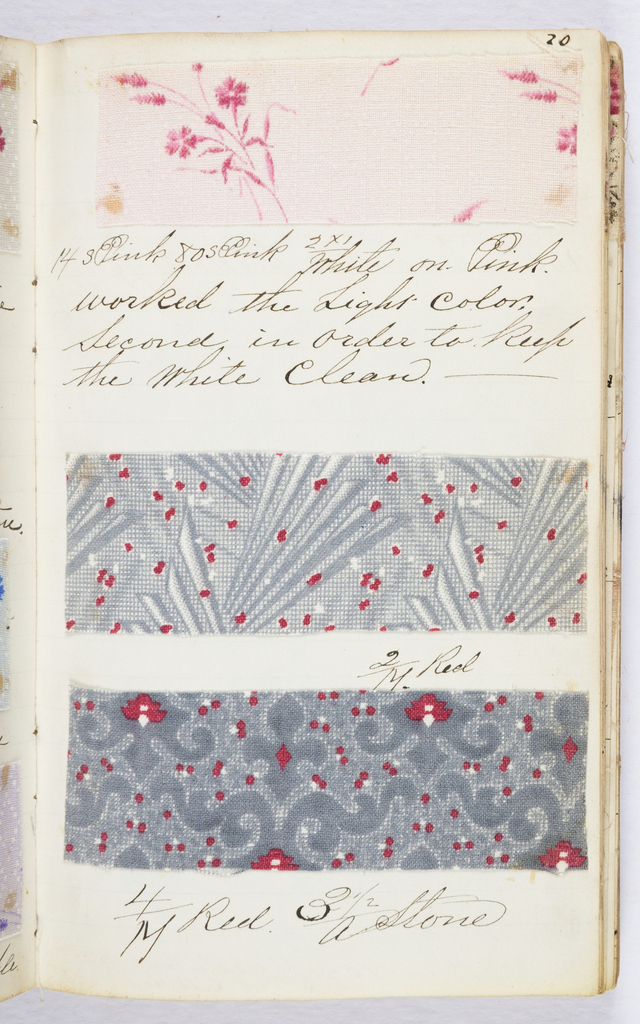 20
14 s Pink 80s Pink 2x1 White on Pink.
worked the Light Color.
Second, in order to keep
the White Clean.
2/M. Red
4/M Red. 3 1/2/a Stone